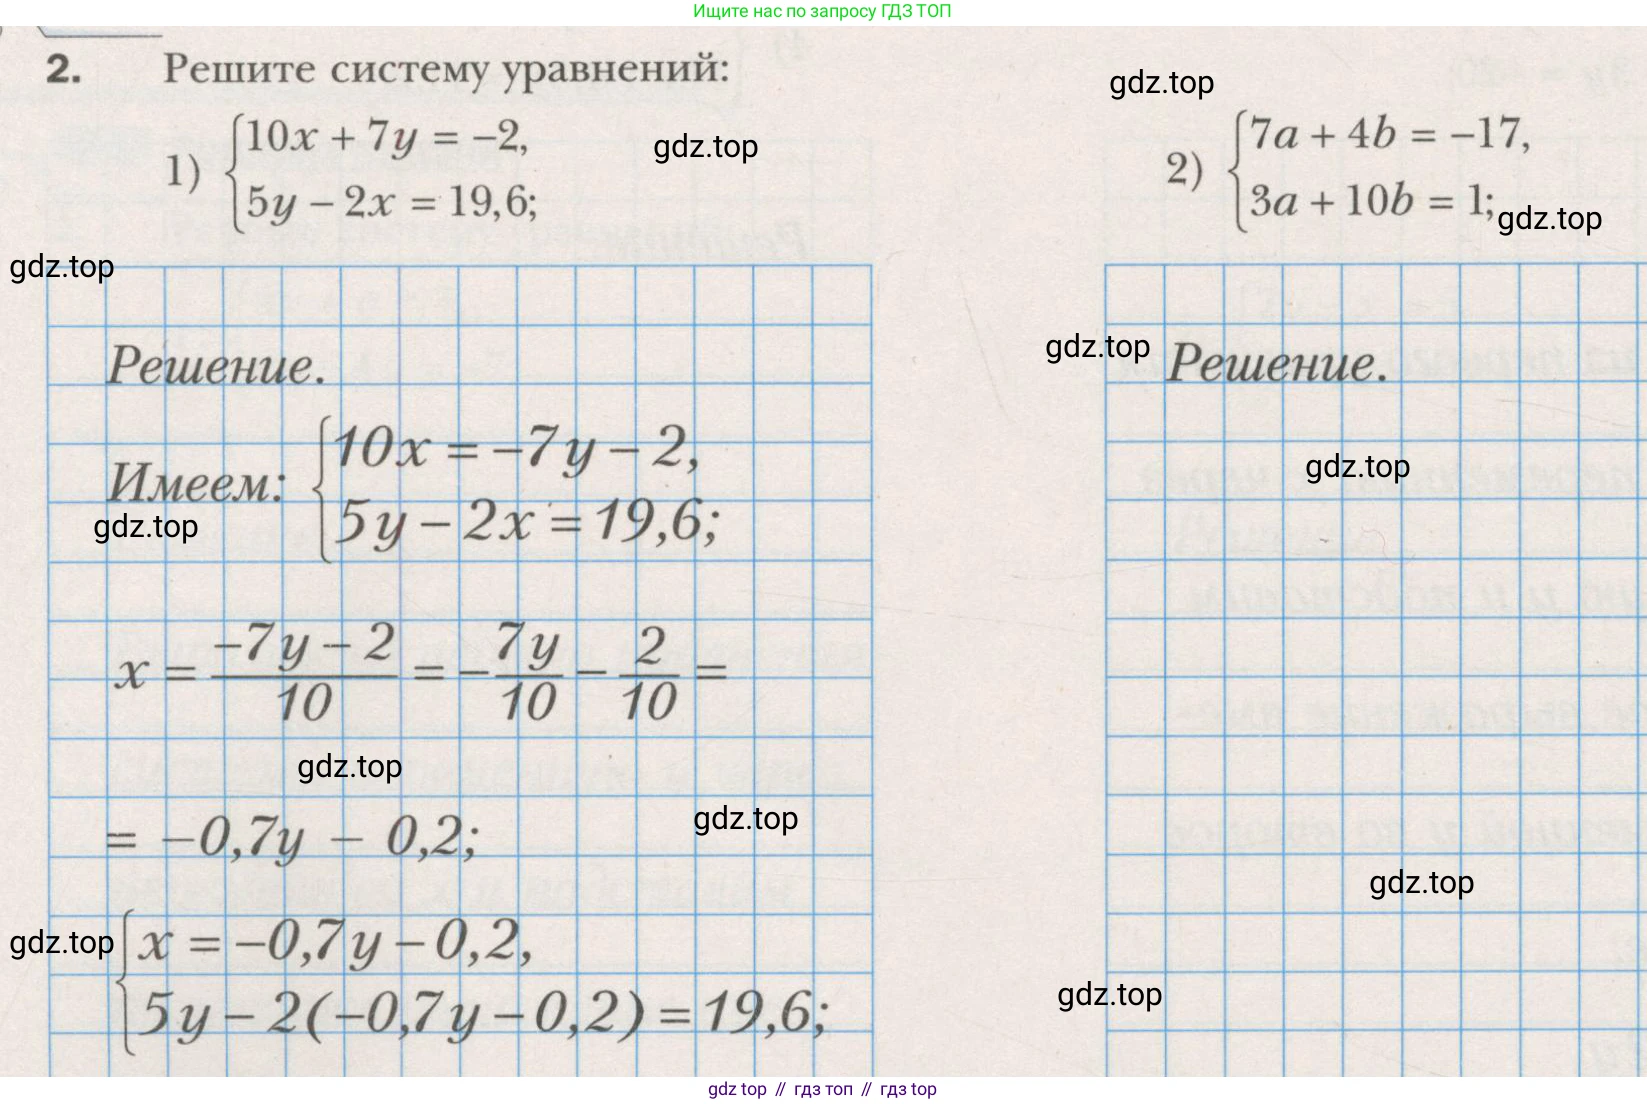 Ищите нас по запросу ГДЗ ТОП
2. Решите систему уравнений:
gdz.top
1) {10x + 7y = −2,
5y − 2x = 19,6;
gdz.top
2) {7a + 4b = −17,
3a + 10b = 1;
gdz.top
gdz.top
Решение.
gdz.top
Решение.
Имеем: {10x = −7y − 2,
5y − 2x = 19,6;
gdz.top
gdz.top
x = \frac{−7y − 2}{10} = −\frac{7y}{10} − \frac{2}{10} =
gdz.top
= −0,7y − 0,2;
gdz.top
gdz.top
gdz.top
{x = −0,7y − 0,2,
5y − 2(−0,7y − 0,2) = 19,6;
gdz.top
gdz top // гдз топ // гдз top